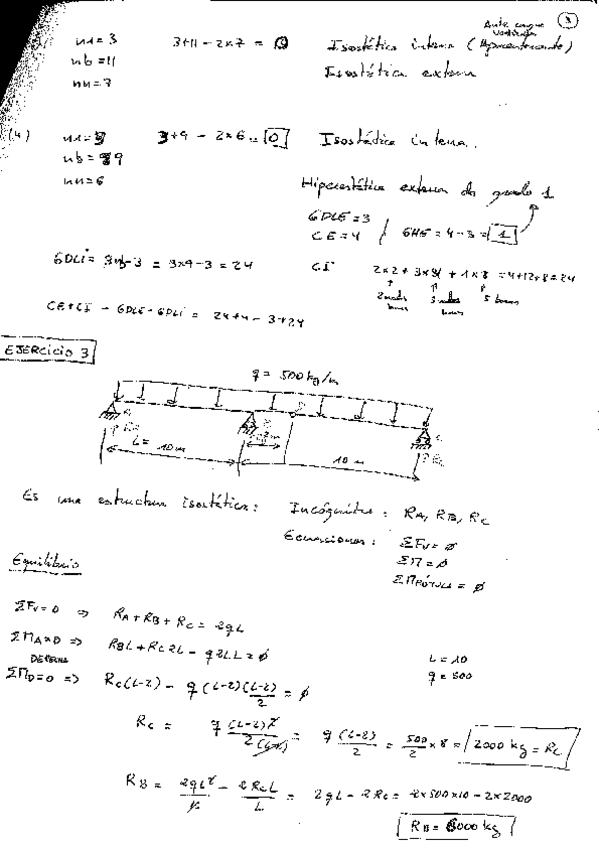 Ante cargas verticales
3
nr=3    3+11-2x7 = 0    Isostática interna (Hiperestáticamente)
nb=11    Isostática externa
nn=7
(4)    nr=3    3+9 - 2x6 = 0    Isostática interna.
nb=9
nn=6    Hiperestática externa de grado 1
GDLE=3
CE=4    GHE = 4-3 = 1
GDLi = 3nb-3 = 3x9-3 = 24    CI    2x2 + 3x4 + 1x8 = 4+12+8=24
2 nudos barras    3 nudos barras    5 barras
CE+CI - GDLE-GDLi = 24+4-3+24
EJERCICIO 3
q = 500 kg/m
A    B    D    C
RA    RC
L= 10 m    2m    10 m
Es una estructura isostática:    Incógnitas: RA, RB, RC
Ecuaciones: ΣFv=ø
ΣM=ø
ΣMRÓTULA=ø
Equilibrio
ΣFv=0 ⇒ RA+RB+RC = 2qL
ΣMA=0 ⇒ RBL+RC2L - q2L.L=ø    L=10
DERECHA    q=500
ΣMD=0 ⇒ RC(L-2) - q(L-2)(L-2)/2 = ø
RC = q(L-2)²/2(L-2) = q(L-2)/2 = 500/2 x8 = 2000 kg = RC
RB = 2qL²/L - 2RCL/L = 2qL - 2RC = 2x500x10 - 2x2000
RB = 6000 kg